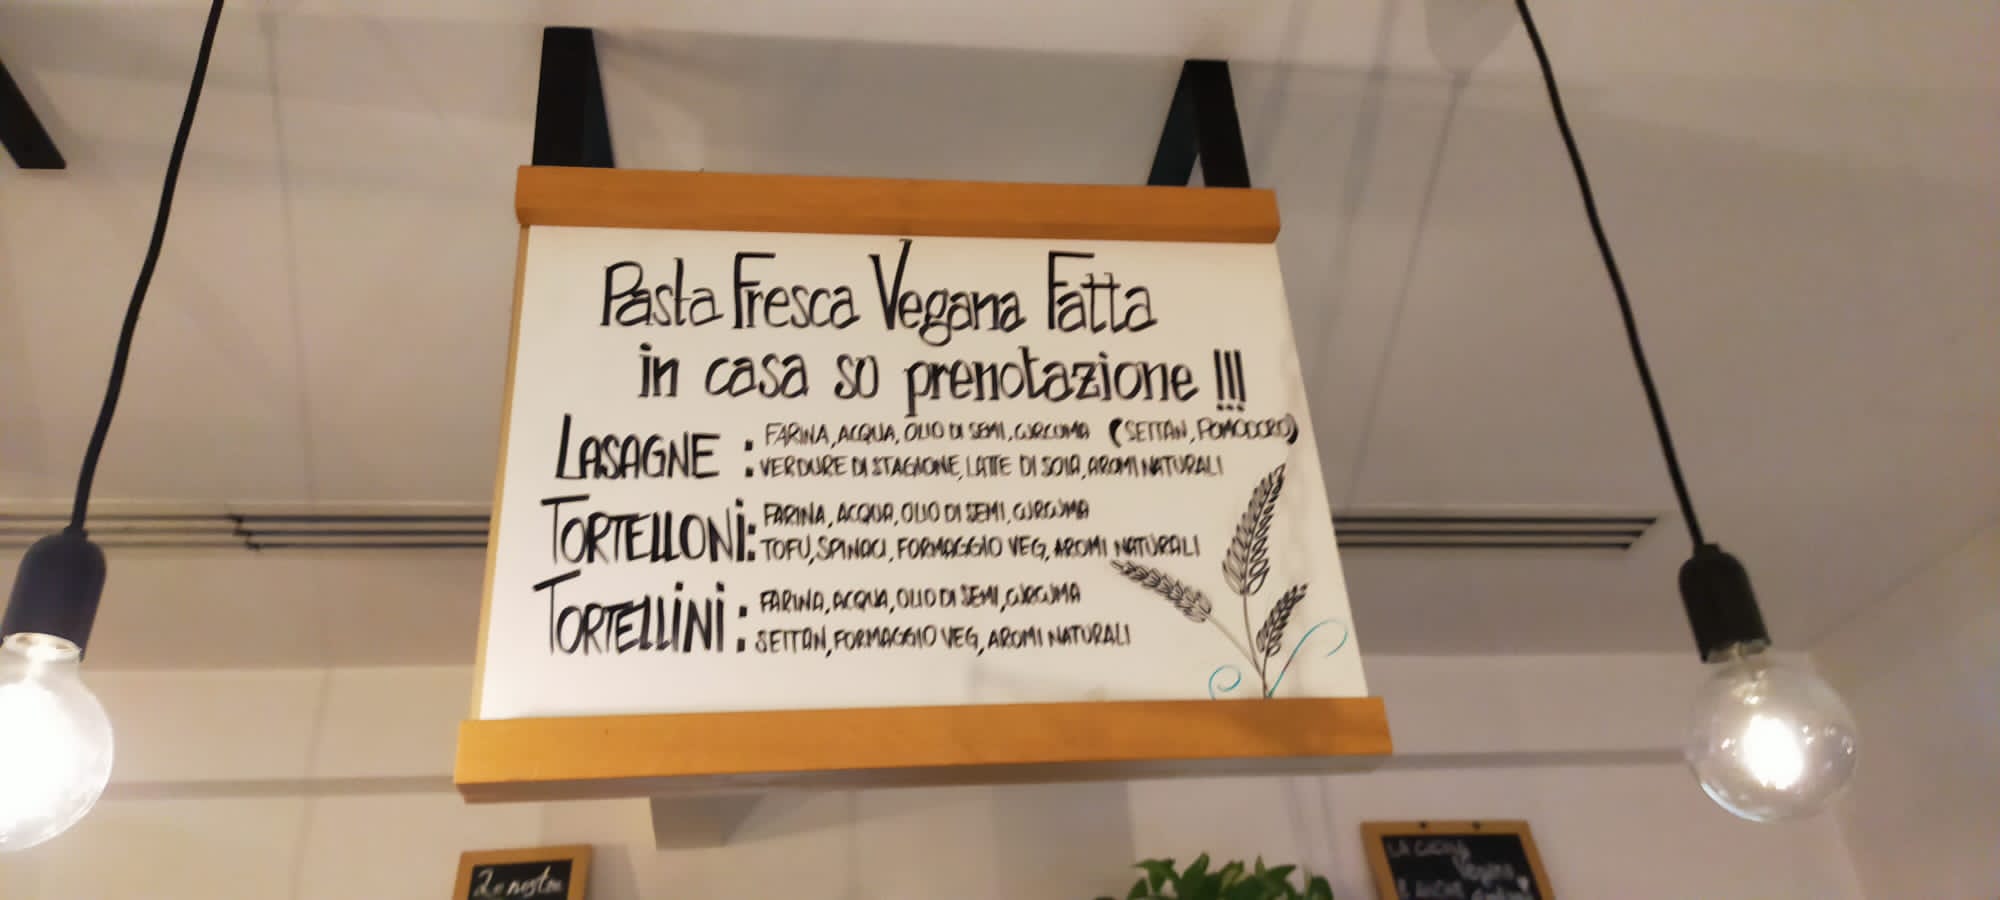 Pasta Fresca Vegana Fatta
in casa su prenotazione !!!
LASAGNE : FARINA, ACQUA, OLIO DI SEMI, CURCUMA (SEITAN, POMODORO)
VERDURE DI STAGIONE, LATTE DI SOIA, AROMI NATURALI
TORTELLONI: FARINA, ACQUA, OLIO DI SEMI, CURCUMA
TOFU, SPINACI, FORMAGGIO VEG, AROMI NATURALI
TORTELLINI : FARINA, ACQUA, OLIO DI SEMI, CURCUMA
SEITAN, FORMAGGIO VEG, AROMI NATURALI
nostre
LA CUCINA
Vegana